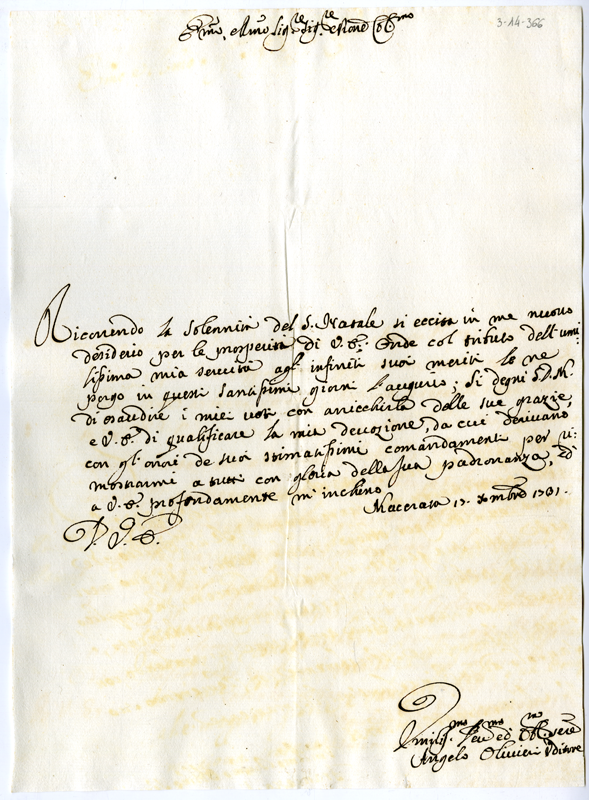 3-14-366
Em̃o, e Rm̃o Sig.re Sig.re e Pad.ne Col.mo
Ricorrendo la Solennità del S. Natale si eccita in me nuouo
desiderio per le prosperità di V. E. Onde col tributo dell'umi:
lissima mia seruitù agl' infiniti suoi meriti lo ne
porgo in questi santissimi giorni l'augurio; Si degni S. D. M.
di esaudire i miei uoti con arricchirla delle sue grazie,
e V. E. di qualificare la mia deuozione, da cui deriuano
con gl' onori de suoi stimatissimi comandamenti per di:
mostrarmi a tutti con gloria della sua padronanza, ed
a V. E. profondamente m' inchino
Macerata 17. Xmbre 1701.
D. V. E.
Umiliss.mo Deu.mo ed Obl.mo Sere
Angelo Oliuieri Uditore